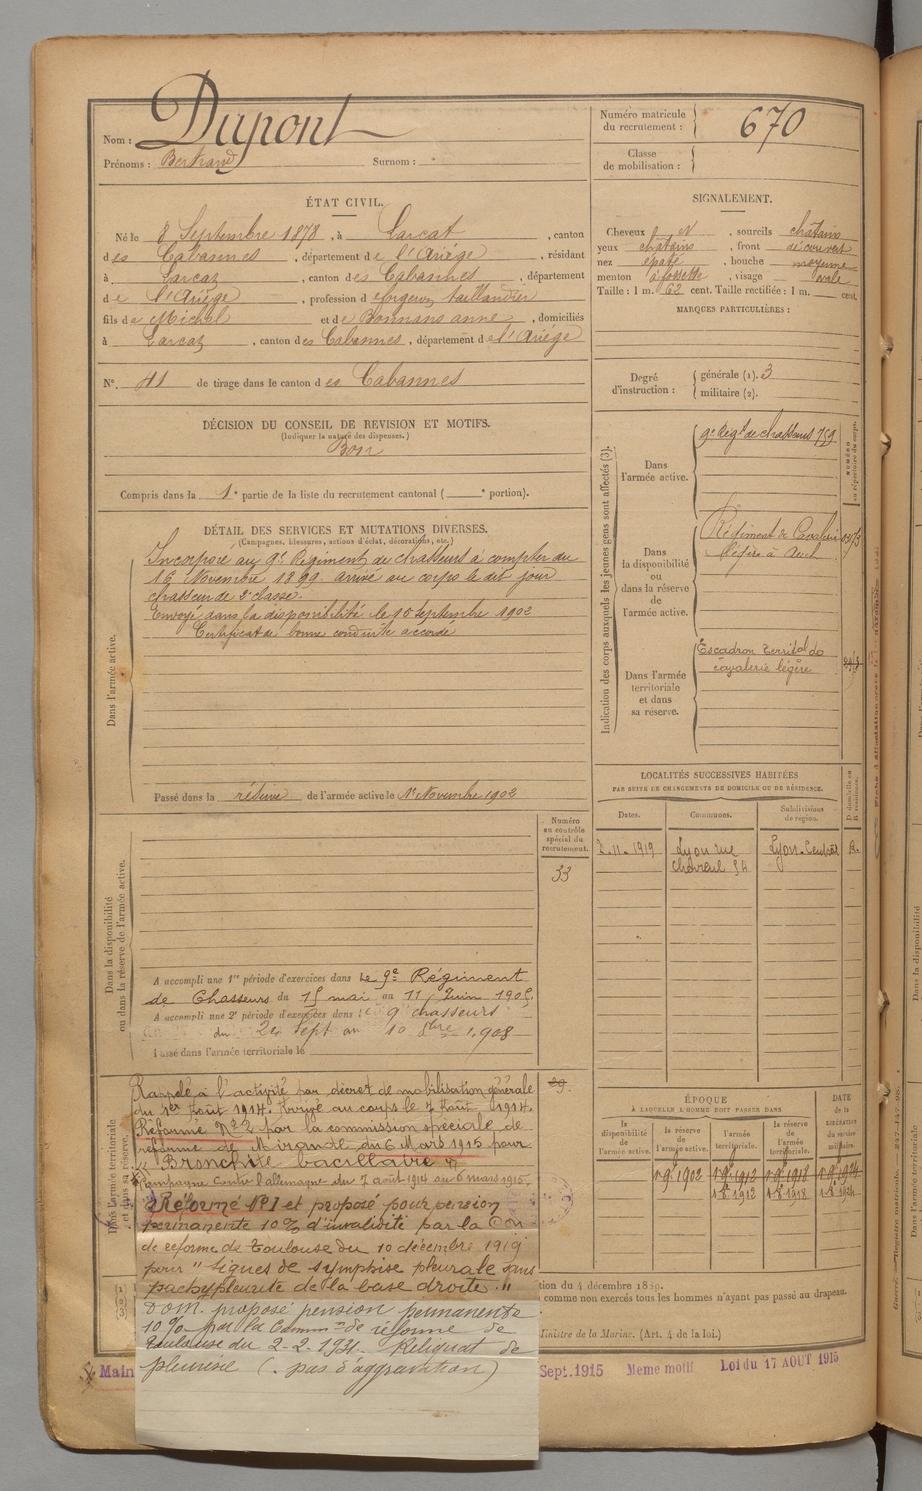 Nom : Dupont
Prénoms : Bertrand Surnom :
Numéro matricule
du recrutement : 670
Classe
de mobilisation :
ÉTAT CIVIL.
Né le 8 Septembre 1878, à Larcat, canton
des Cabannes, département de l'Ariège, résidant
à Larcat, canton des Cabannes, département
de l'Ariège, profession de forgeron taillandier
fils de Michel et de Bonnans anne, domiciliés
à Larcat, canton des Cabannes, département de l'Ariège
N° 41 de tirage dans le canton des Cabannes
SIGNALEMENT.
Cheveux N, sourcils chatains
yeux chatains, front découvert
nez épaté, bouche moyenne
menton à fossette, visage ovale
Taille : 1 m. 62 cent. Taille rectifiée : 1 m. cent.
MARQUES PARTICULIÈRES :
Degré
d'instruction :
générale (1). 3
militaire (2).
DÉCISION DU CONSEIL DE REVISION ET MOTIFS.
(Indiquer la nature des dispenses.)
Bon
Compris dans la 1e partie de la liste du recrutement cantonal ( e portion).
DÉTAIL DES SERVICES ET MUTATIONS DIVERSES.
(Campagnes, blessures, actions d'éclat, décorations, etc.)
Dans l'armée active.
Incorporé au 9e Régiment de chasseurs à compter du
16 Novembre 1899. arrivé au corps le dit jour
chasseur de 2e classe.
Envoyé dans la disponibilité le 10 Septembre 1902
Certificat de bonne conduite accordé
Passé dans la réserve de l'armée active le 1r Novembre 1902
Indication des corps auxquels les jeunes gens sont affectés (3).
Dans
l'armée active.
9e Régt de chasseurs 759
NUMÉRO
au répertoire du corps.
Dans
la disponibilité
ou
dans la réserve
de
l'armée active.
Régiment de Cavalerie
légère à Auch
Dans l'armée
territoriale
et dans
sa réserve.
Escadron territal de
cavalerie légère
LOCALITÉS SUCCESSIVES HABITÉES
PAR SUITE DE CHANGEMENTS DE DOMICILE OU DE RÉSIDENCE.
D. domicile ou
R. résidence.
Dates. Communes. Subdivisions
de région.
2.11.1919 Lyon rue Lyon-Central R.
Chevreul 54
Dans la disponibilité
ou dans la réserve de l'armée active.
Numéro
au contrôle
spécial du
recrutement.
33
A accompli une 1re période d'exercices dans Le 9e Régiment
de Chasseurs du 15 mai au 11 Juin 1905.
A accompli une 2e période d'exercices dans le 9e chasseurs
du 24 sept au 10 8bre 1908
Passé dans l'armée territoriale le
Dans l'armée territoriale
et dans sa réserve.
29.
Rappelé à l'activité par décret de mobilisation générale
du 1er Août 1914. Arrivé au corps le 7 Août 1914.
Réformé N° 2 par la commission spéciale de
réforme de Mirande du 6 Mars 1915 pour
"Bronchite bacillaire"
Campagne Contre l'allemagne du 7 août 1914 au 6 mars 1915.
Réformé N° 1 et proposé pour pension
permanente 10% d'invalidité par la Con
de reforme de Toulouse du 10 décembre 1919
pour "Signes de symphise pleurale sans
pachypleurite de la base droite."
Dom. proposé pension permanente
10% par la Common de réforme de
Toulouse du 2-2-1921. Reliquat de
pleurésie (. pas d'aggravation)
ÉPOQUE
À LAQUELLE L'HOMME DOIT PASSER DANS
DATE
de la
LIBÉRATION
du service
militaire.
la
disponibilité
de
l'armée active.
la réserve
de
l'armée active.
l'armée
territoriale.
la réserve
de
l'armée
territoriale.
1 9 1902 1 9 1912 1 9 1918 1 9 1924
1 8 1912 1 8 1918 1 8 1924
tion du 4 décembre 1889.
comme non exercés tous les hommes n'ayant pas passé au drapeau.
Ministre de la Marine. (Art. 4 de la loi.)
Main Sept.1915 Meme motif Loi du 17 AOUT 1915